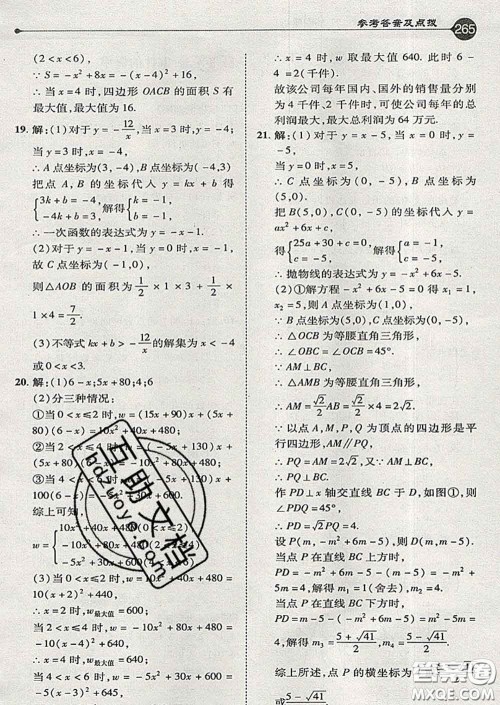 参考答案及点拨 265
(2<x<6),
∵ S=-x²+8x=-(x-4)²+16,
∴ 当 x=4 时,四边形 OACB 的面积 S 有
最大值,最大值为 16.
19. 解:(1)对于 y=-12/x,当 x=3 时,y=-4;
当 y=3 时,x=-4,
∴ A 点坐标为(3,-4),B 点坐标为(-4,3)
把点 A,B 的坐标代入 y=kx+b 得
{3k+b=-4, -4k+b=3; 解得{k=-1, b=-1,
∴ 一次函数的表达式为 y=-x-1.
(2)对于 y=-x-1,当 y=0 时,x=-1,
故 C 点坐标为(-1,0),
则△AOB 的面积为 1/2×1×3+1/2
×1×4=7/2.
(3)不等式 kx+b>-12/x 的解集为 x<-4
或 0<x<3.
20. 解:(1)6-x;5x+80;4;6
(2)分三种情况:
①当 0<x≤2 时,w=(15x+90)x+(5x+
80)(6-x)=10x²+40x+480;
②当 2<x≤4 时,w=(-5x+130)x+
(5x+80)(6-x)=-10x²+80x+480;
③当 4<x<6 时,w=(-5x+130)x+
100(6-x)=-5x²+30x+600.
综上可知,
w={10x²+40x+480(0<x≤2)
-10x²+80x+480(2<x≤4)
-5x²+30x+600(4<x<6)
(3)当 0<x≤2 时,w=10x²+40x+480=
10(x+2)²+440,
∴ 当 x=2 时,w最大值=600;
当 2<x≤4 时,w=-10x²+80x+480=
-10(x-4)²+640,
∴ 当 x=4 时,w最大值=640;
当 4<x<6 时,w=-5x²+30x+600=
-5(x-3)²+645,
∴ x=4 时,w取最大值 640.此时 6-
4=2(千件).
故该公司每年国内、国外的销售量分别
为 4 千件,2 千件时,可使公司每年的总
利润最大,最大总利润为 64 万元.
21. 解:(1)对于 y=x-5,当 x=0 时,y=
-5,
∴ C 点坐标为(0,-5),
当 y=0 时,x=5,∴ B 点坐标为(5,0).
把 B(5,0),C(0,-5)的坐标代入 y=
ax²+6x+c,
得{25a+30+c=0, c=-5; 解得{a=-1, c=-5,
∴ 抛物线的表达式为 y=-x²+6x-5.
(2)①解方程-x²+6x-5=0 得 x₁=1,
x₂=5,
∴ A 点坐标为(1,0).
∵ B 点坐标为(5,0),C 点坐标为(0,-5),
∴ △OCB 为等腰直角三角形,
∴ ∠OBC=∠OCB=45°.
∴ △AMB 为等腰直角三角形,
∴ AM=√2/2 AB=√2/2×4=2√2.
∵ 以点 A,M,P,Q 为顶点的四边形是平
行四边形,AM∥PQ,
∴ PQ=AM=2√2.
∴ PQ⊥BC.
作 PD⊥x 轴交直线 BC 于 D,如图①,则
∠PDQ=45°,
∴ PD=√2PQ=4.
设 P(m,-m²+6m-5),则 D(m,m-5).
当点 P 在直线 BC 上方时,
PD=-m²+6m-5-(m-5)=-m²+
5m=4,解得 m₁=1(舍去),m₂=4.
当点 P 在直线 BC 下方时,
PD=m-5-(-m²+6m-5)=m²-5m
=4,解得 m₃=(5+√41)/2,m₄=(5-√41)/2.
综上所述,点 P 的横坐标为
或(5-√41)/2
互助文档
bdzuoye.com
答案圈
MXQE.COM